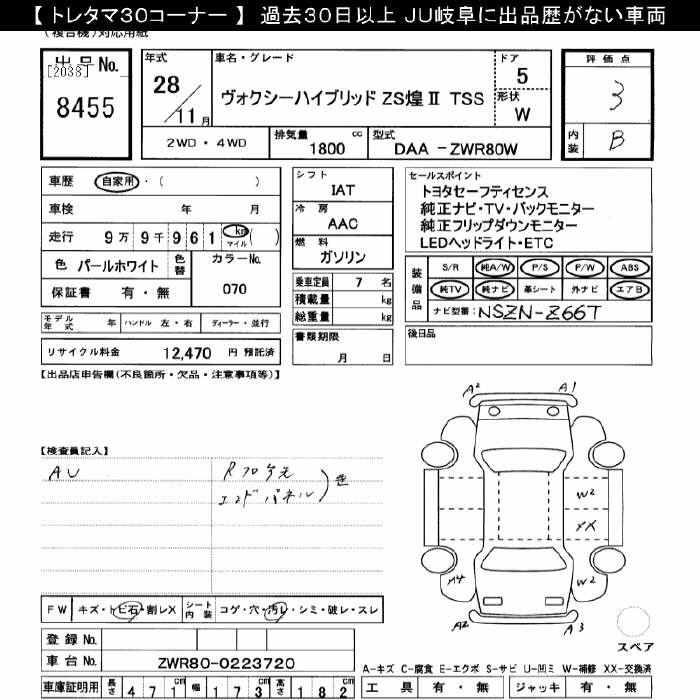 【トレタマ30コーナー】 過去30日以上 JU岐阜に出品歴がない車両
(複合機)対応用紙
出品No.
[2038]
8455
年式
28
11月
車名・グレード
ヴォクシーハイブリッド ZS煌Ⅱ TSS
ドア
5
形状
W
評価点
3
内装
B
2WD・4WD
排気量
1800 cc
型式
DAA -ZWR80W
車歴 自家用・( )
車検 年 月
走行 9万9千961 km マイル ( )
色 パールホワイト
色替
カラーNo.
070
保証書 有・無
シフト
IAT
冷房
AAC
燃料
ガソリン
乗車定員 7 名
積載量 kg
総重量 kg
書類期限
月 日
セールスポイント
トヨタセーフティセンス
純正ナビ・TV・バックモニター
純正フリップダウンモニター
LEDヘッドライト・ETC
装備品
S/R 純A/W P/S P/W ABS
純TV 純ナビ 革シート 外ナビ エアB
ナビ型番: NSZN-Z66T
後日品
モデル年式 年 ハンドル 左・右 ディーラー・並行
リサイクル料金 12,470 円 預託済
【出品店申告欄(不良箇所・欠品・注意事項等)】
【検査員記入】
AU
エンドパネル
A2 A1
W2
XX
A4 W2
A2 A3
スペア
FW キズ・トビ石・割レX シート内装 コゲ・穴・汚レ・シミ・破レ・スレ
登録No.
車台No. ZWR80-0223720
車庫証明用 長さ 471cm 幅 173cm 高さ 182cm
A-キズ C-腐食 E-エクボ S-サビ U-凹ミ W-補修 XX-交換済
工具 有・無 ジャッキ 有・無